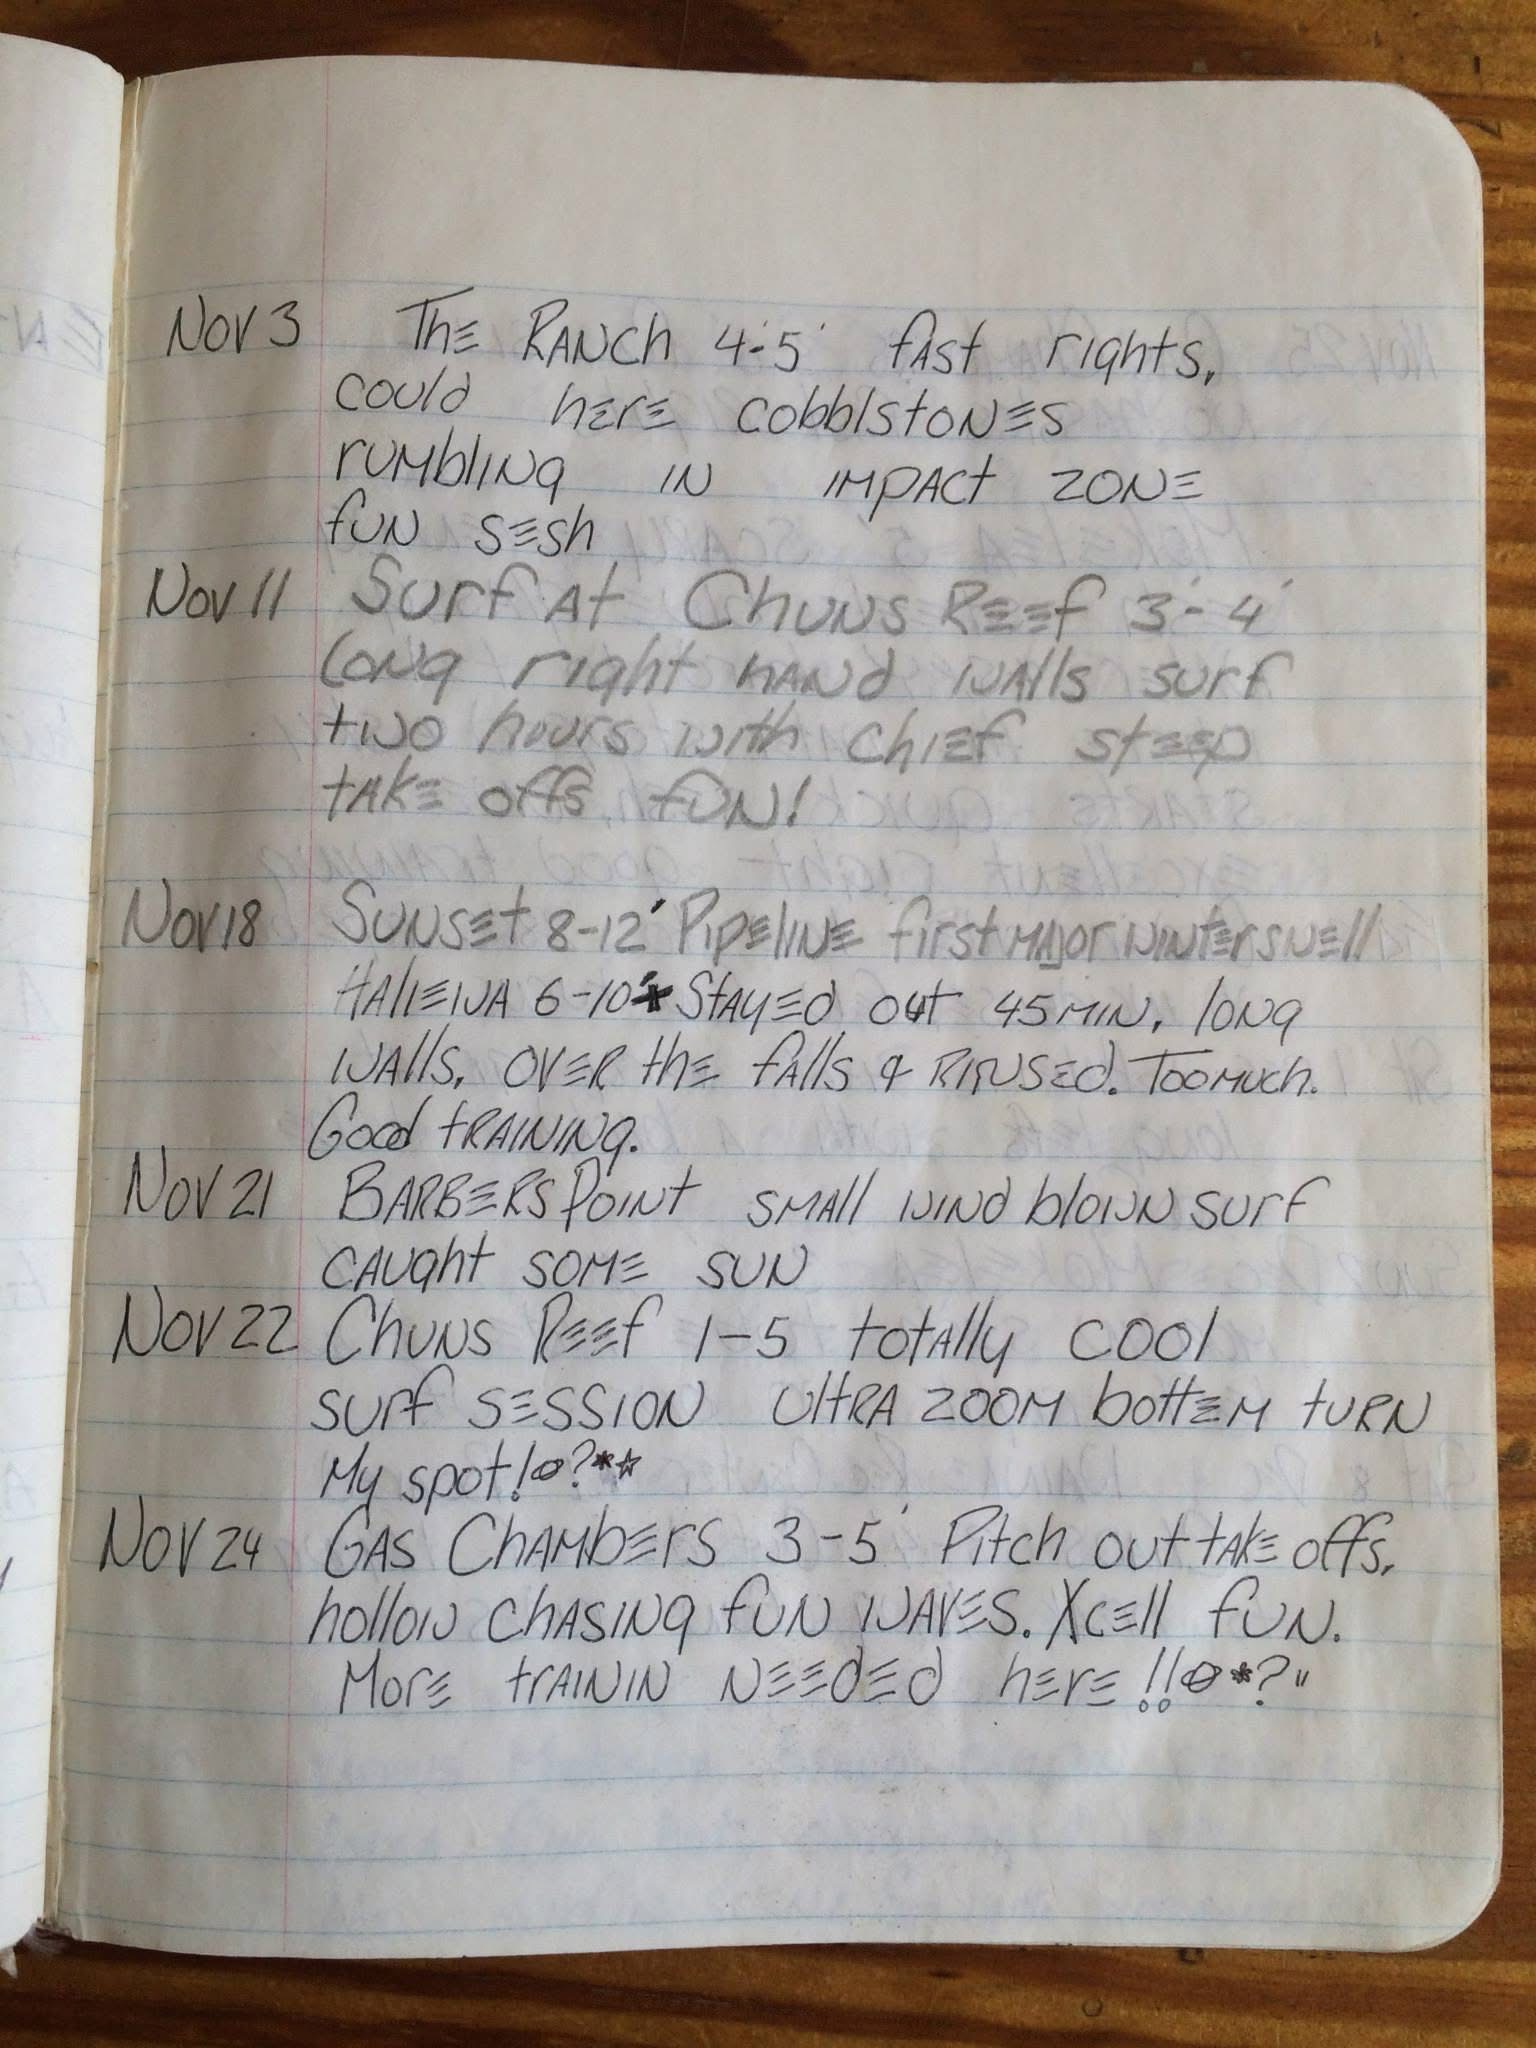 Nov 3 The Ranch 4'-5' fast rights,
could here cobblstones
rumbling in impact zone
fun sesh
Nov 11 Surf at Chuns Reef 3'-4'
long right hand walls surf
two hours with chief steep
take offs fun!
Nov 18 Sunset 8-12' Pipeline first major winter swell
Haliewa 6-10'+ Stayed out 45 min, long
walls, over the falls & rinsed. Too much.
Good training.
Nov 21 Barbers Point small wind blown surf
caught some sun
Nov 22 Chuns Reef 1-5 totally cool
surf session ultra zoom bottem turn
My spot!ø?*☆
Nov 24 Gas Chambers 3-5' Pitch out take offs,
hollow chasing fun waves. Xcell fun.
More trainin needed here!!ø*?"